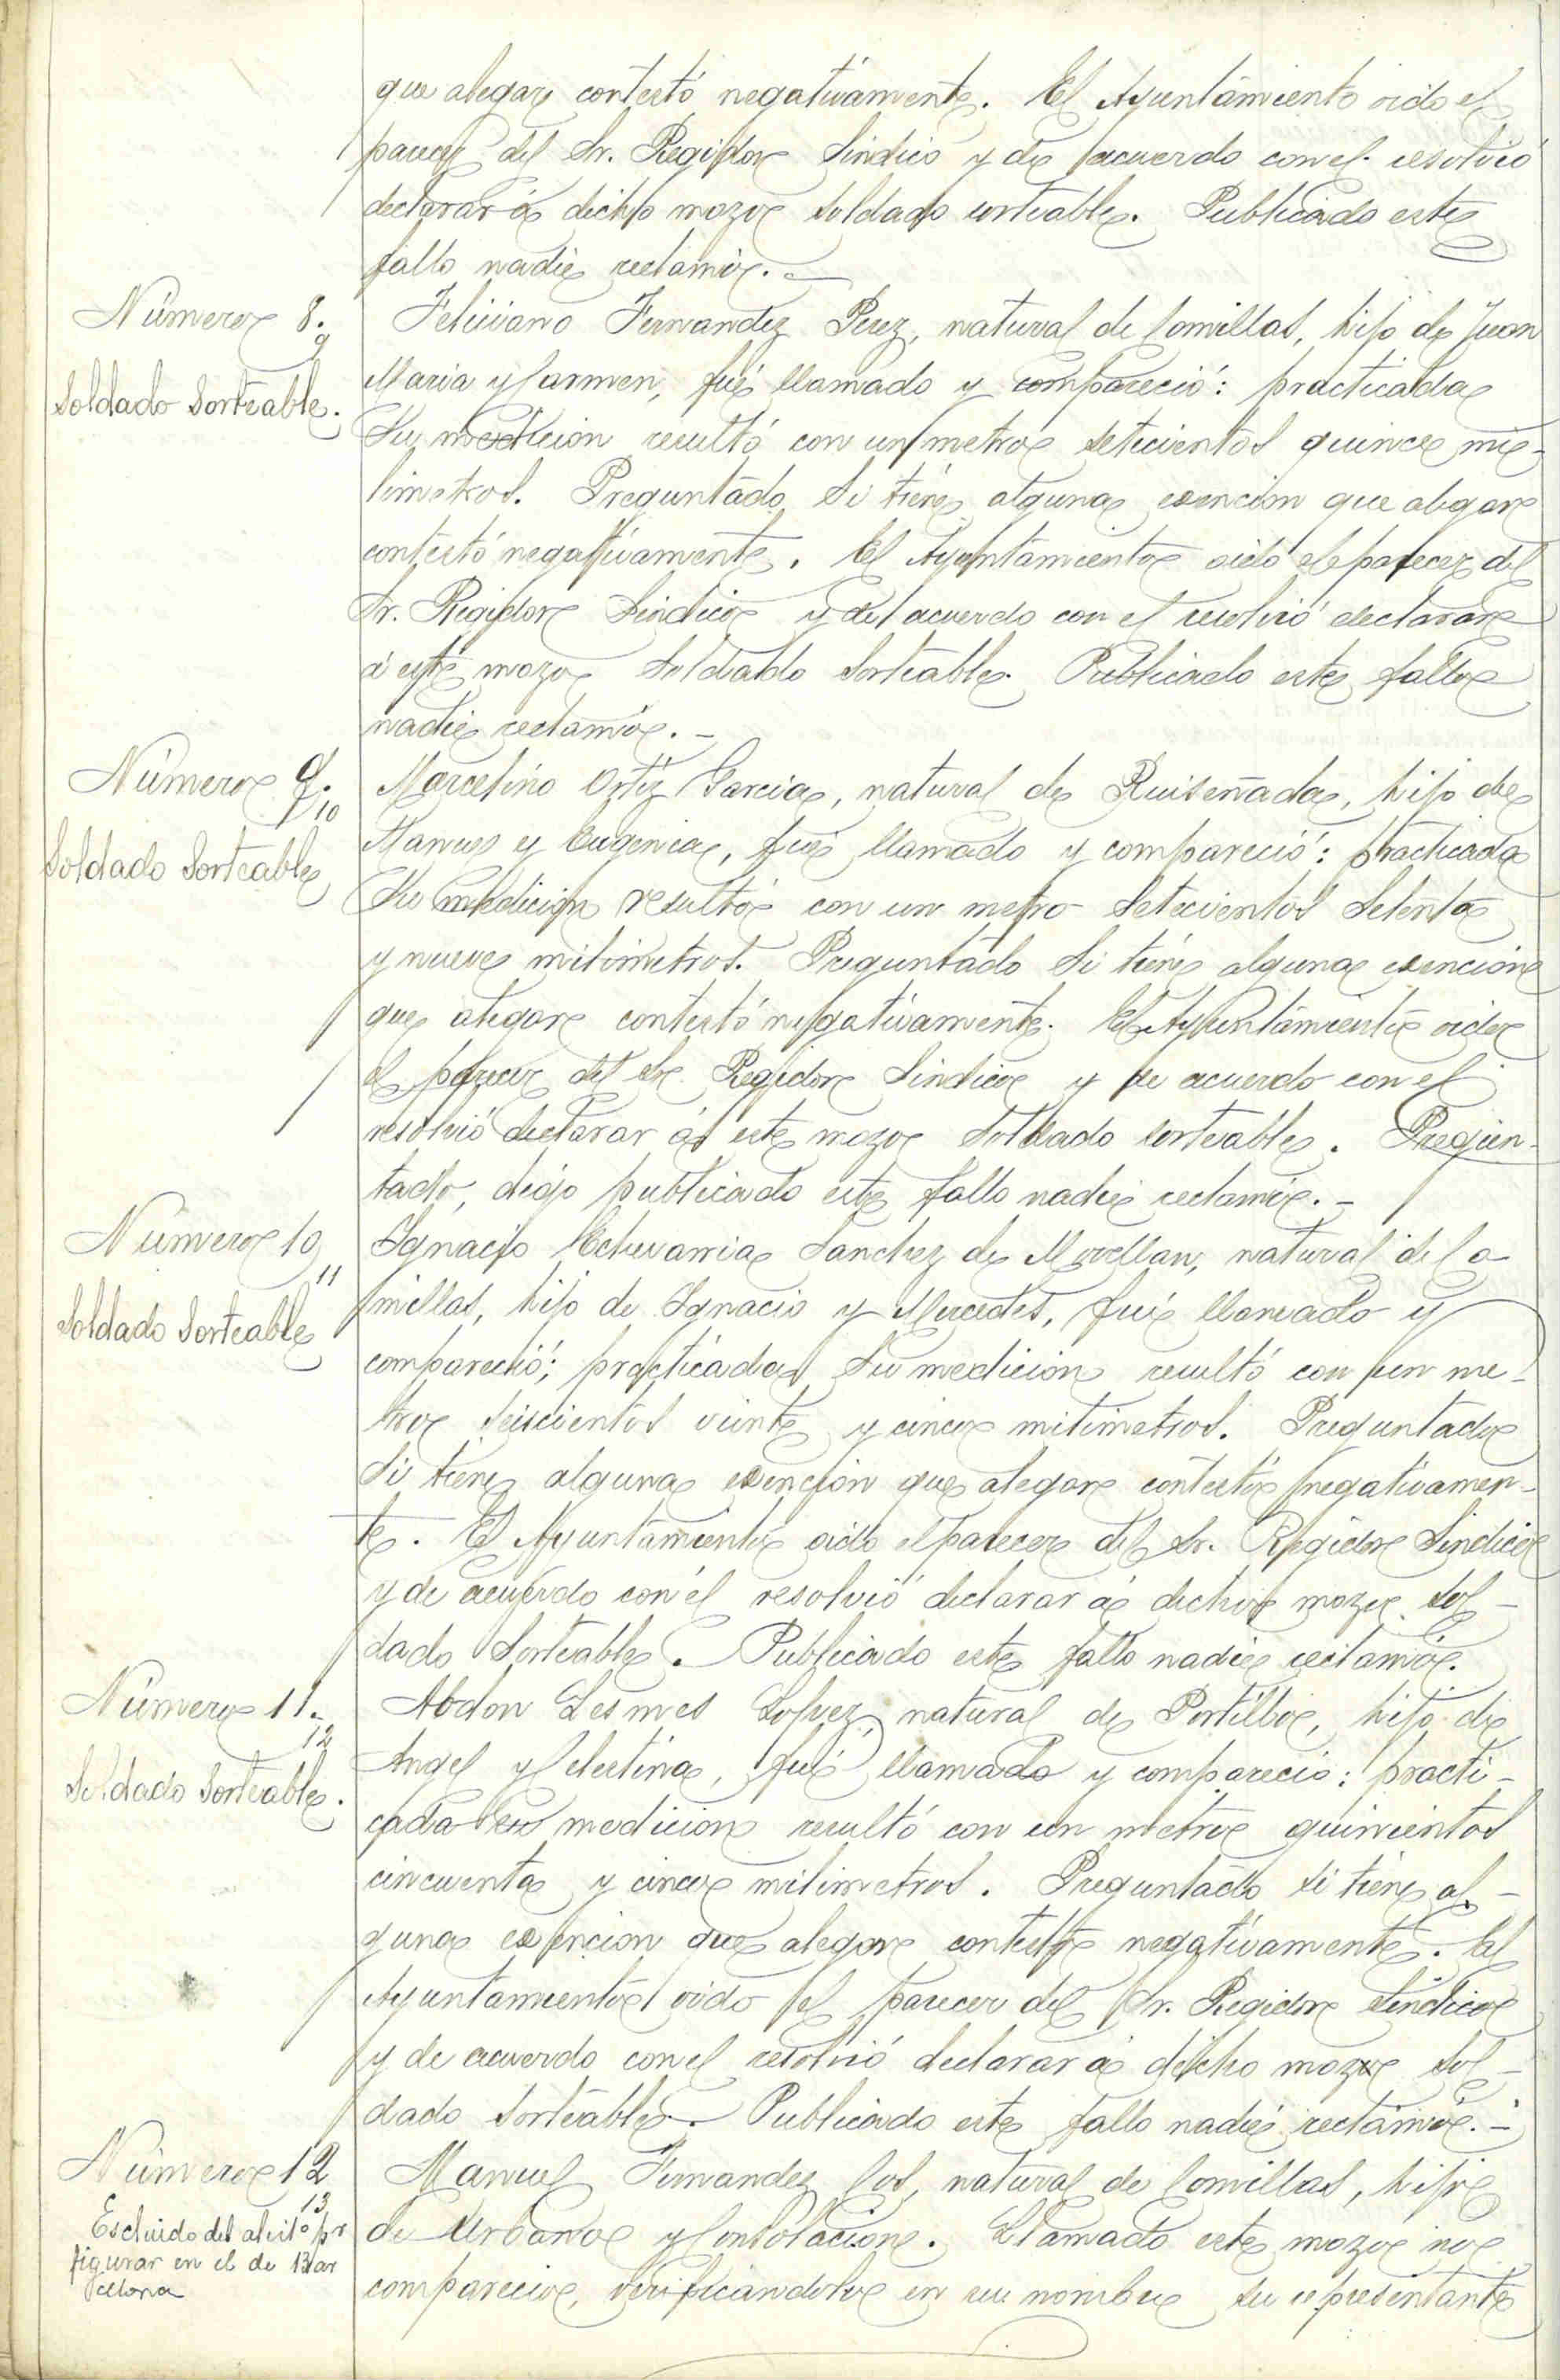 que alegar contestó negativamente. El Ayuntamiento oido el
parecer del Sr. Regidor Sindico y de acuerdo con el resolvió
declarar á dicho mozo soldado sorteable. Publicado este
fallo nadie reclamó. -
Número 8.
9
Soldado Sorteable.
Feliciano Fernandez Perez, natural de Comillas, hijo de Juan
Maria y Carmen, fué llamado y compareció: practicada
su medicion resultó con un metro setecientos quince mi-
limetros. Preguntado si tiene alguna esencion que alegar
contestó negativamente. El Ayuntamiento oido el parecer del
Sr. Regidor Sindico y de acuerdo con el resolvió declarar
á este mozo soldado sorteable. Publicado este fallo
nadie reclamó. -
Número 9.
10
Soldado Sorteable
Marcelino Ortiz Garcia, natural de Ruiseñada, hijo de
Marcos y Eugenia, fué llamado y compareció: practicada
su medicion resultó con un metro setecientos setenta
y nueve milimetros. Preguntado si tiene alguna esencion
que alegar contestó negativamente. El Ayuntamiento oido
el parecer del Sr. Regidor Sindico y de acuerdo con el
resolvió declarar á este mozo soldado sorteable. Pregun-
tado, digo publicado este fallo nadie reclamó. -
Número 10
11
Soldado Sorteable
Ignacio Echevarria Sanchez de Movellan, natural de Co-
millas, hijo de Ignacio y Mercedes, fué llamado y
compareció; practicada su medicion resultó con un me-
tro seiscientos veinte y cinco milimetros. Preguntado
si tiene alguna esencion que alegar contestó negativamen-
te. El Ayuntamiento oido el parecer del Sr. Regidor Sindico
y de acuerdo con él resolvió declarar á dicho mozo sol-
dado sorteable. Publicado este fallo nadie reclamó.
Número 11.
12
Soldado Sorteable.
Abdon Lesmes Lopez, natural de Portillo, hijo de
Angel y Celestina, fué llamado y compareció: practi-
cada su medicion resultó con un metro quinientos
cincuenta y cinco milimetros. Preguntado si tiene al-
guna esencion que alegar contestó negativamente. El
Ayuntamiento oido el parecer del Sr. Regidor Sindico
y de acuerdo con el resolvió declarar á dicho mozo sol-
dado sorteable. Publicado este fallo nadie reclamó. -
Número 12
13
Escluido del alistº pr
figurar en el de Bar
celona
Manuel Fernandez Cos, natural de Comillas, hijo
de Urbano y Consolacion. Llamado este mozo no
compareció, verificandolo en su nombre su representante